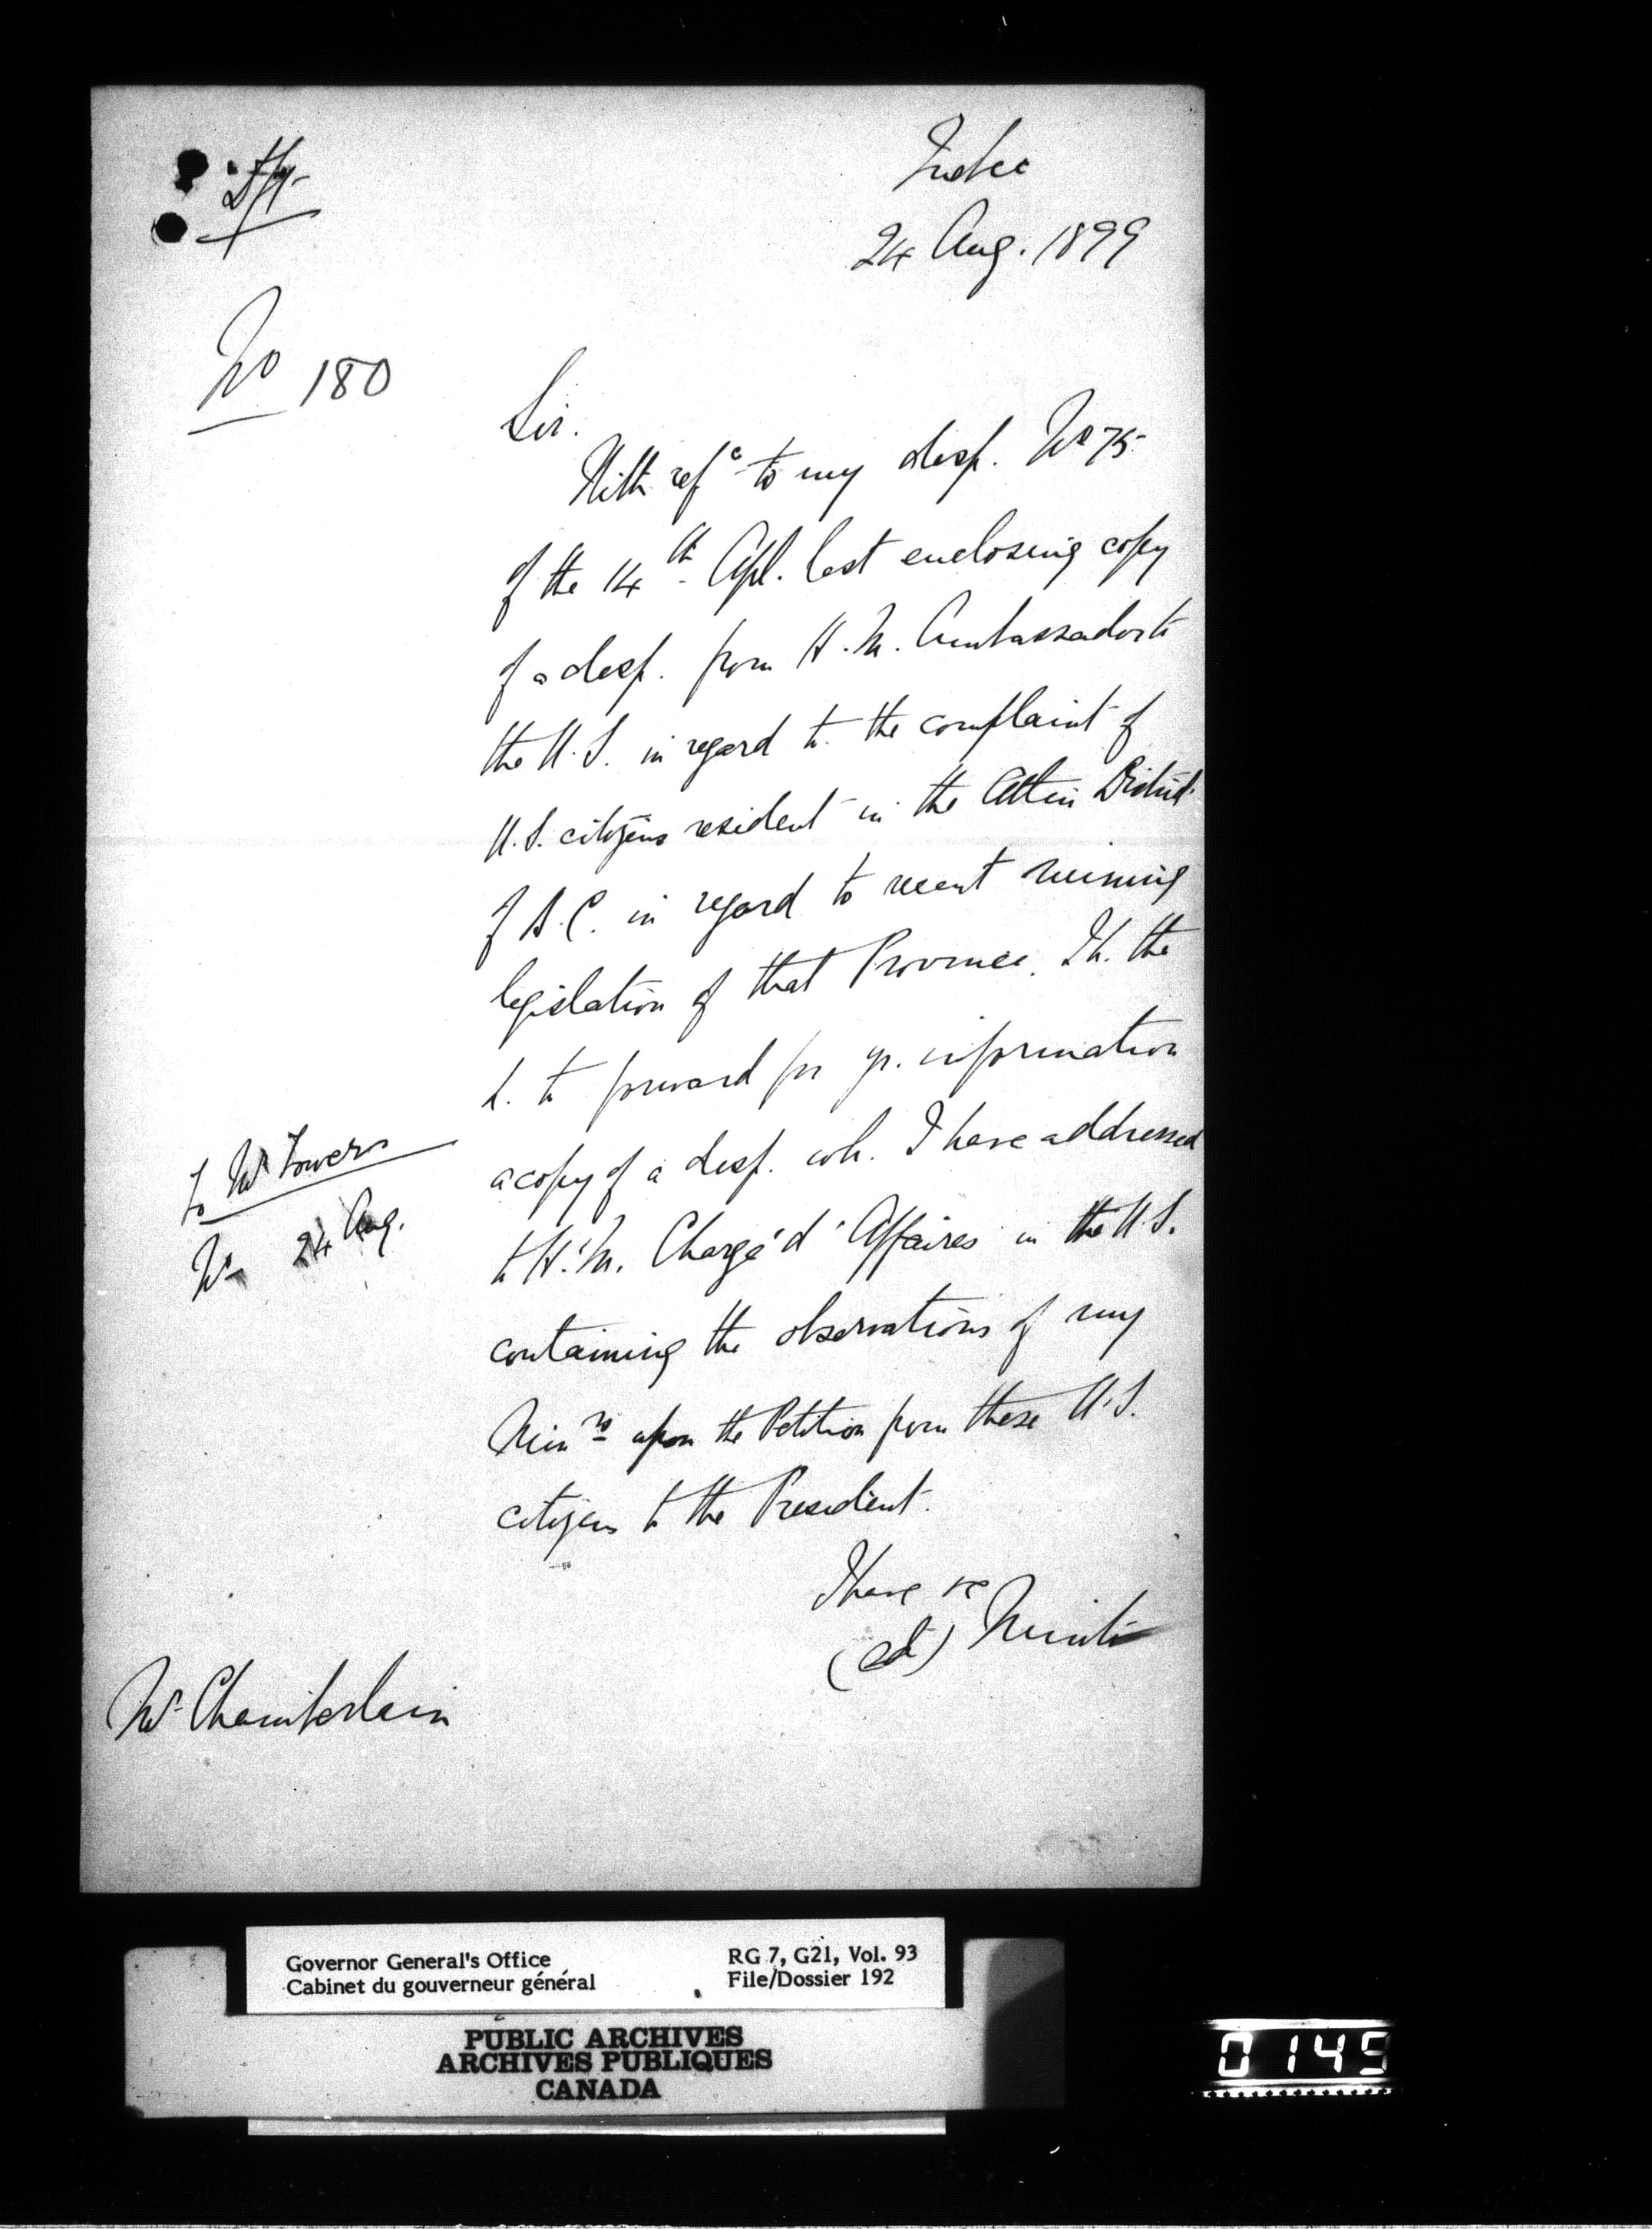 Dft
Quebec
24 Aug. 1899
No 180
Sir.
With refce to my desp. No 75
of the 14th Apl. last enclosing copy
of a desp. from H.M. Ambassador to
the U.S. in regard to the complaint of
U.S. citizens resident in the Atlin District
of B.C. in regard to recent mining
legislation of that Province. I h. the
h. to forward for yr. information
a copy of a desp. wh. I have addressed
to H.M. Chargé d'Affaires in the U.S.
containing the observations of my
Minrs upon the Petition from these U.S.
citizens to the President.
To Mr Tower
No 24 Aug.
I have &c
(sd) Minto
Mr Chamberlain
Governor General's Office
Cabinet du gouverneur général
RG 7, G21, Vol. 93
File/Dossier 192
PUBLIC ARCHIVES
ARCHIVES PUBLIQUES
CANADA
0145